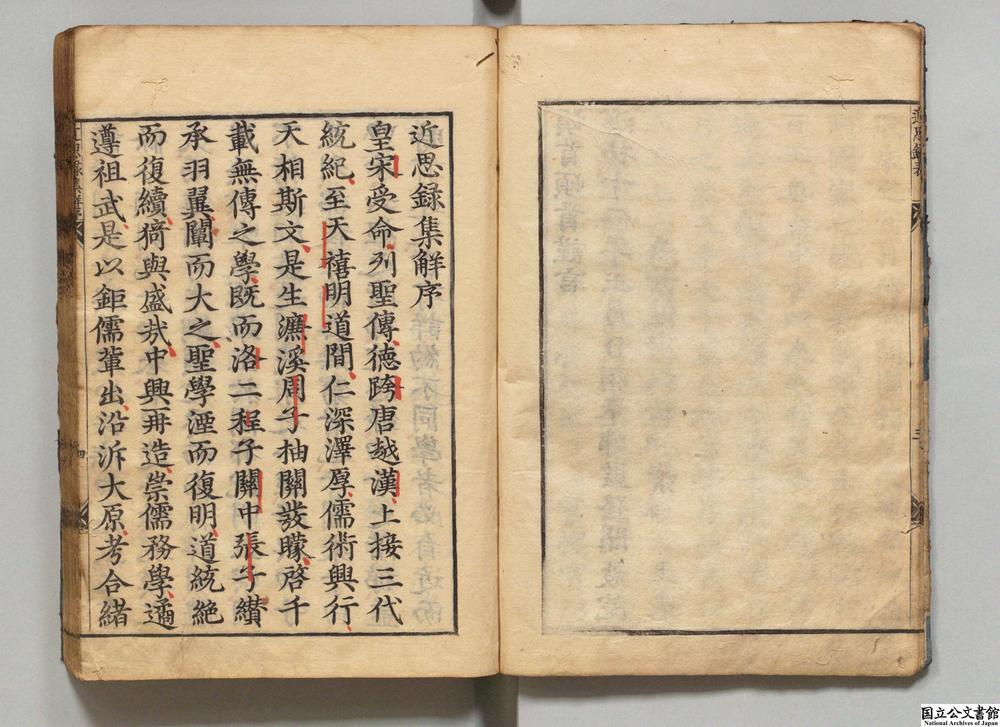 近思録集解序
皇宋受命列聖傳德跨唐越漢上接三代
統紀至天禧明道間仁深澤厚儒術興行
天相斯文是生濂溪周子抽關發矇啓千
載無傳之學既而洛二程子關中張子纘
承羽翼闡而大之聖學湮而復明道統絶
而復續猗與盛㢤中興再造崇儒務學遹
遵祖武是以鉅儒輩出沿泝大原考合緒
四
近思錄表
三
国立公文書館
National Archives of Japan